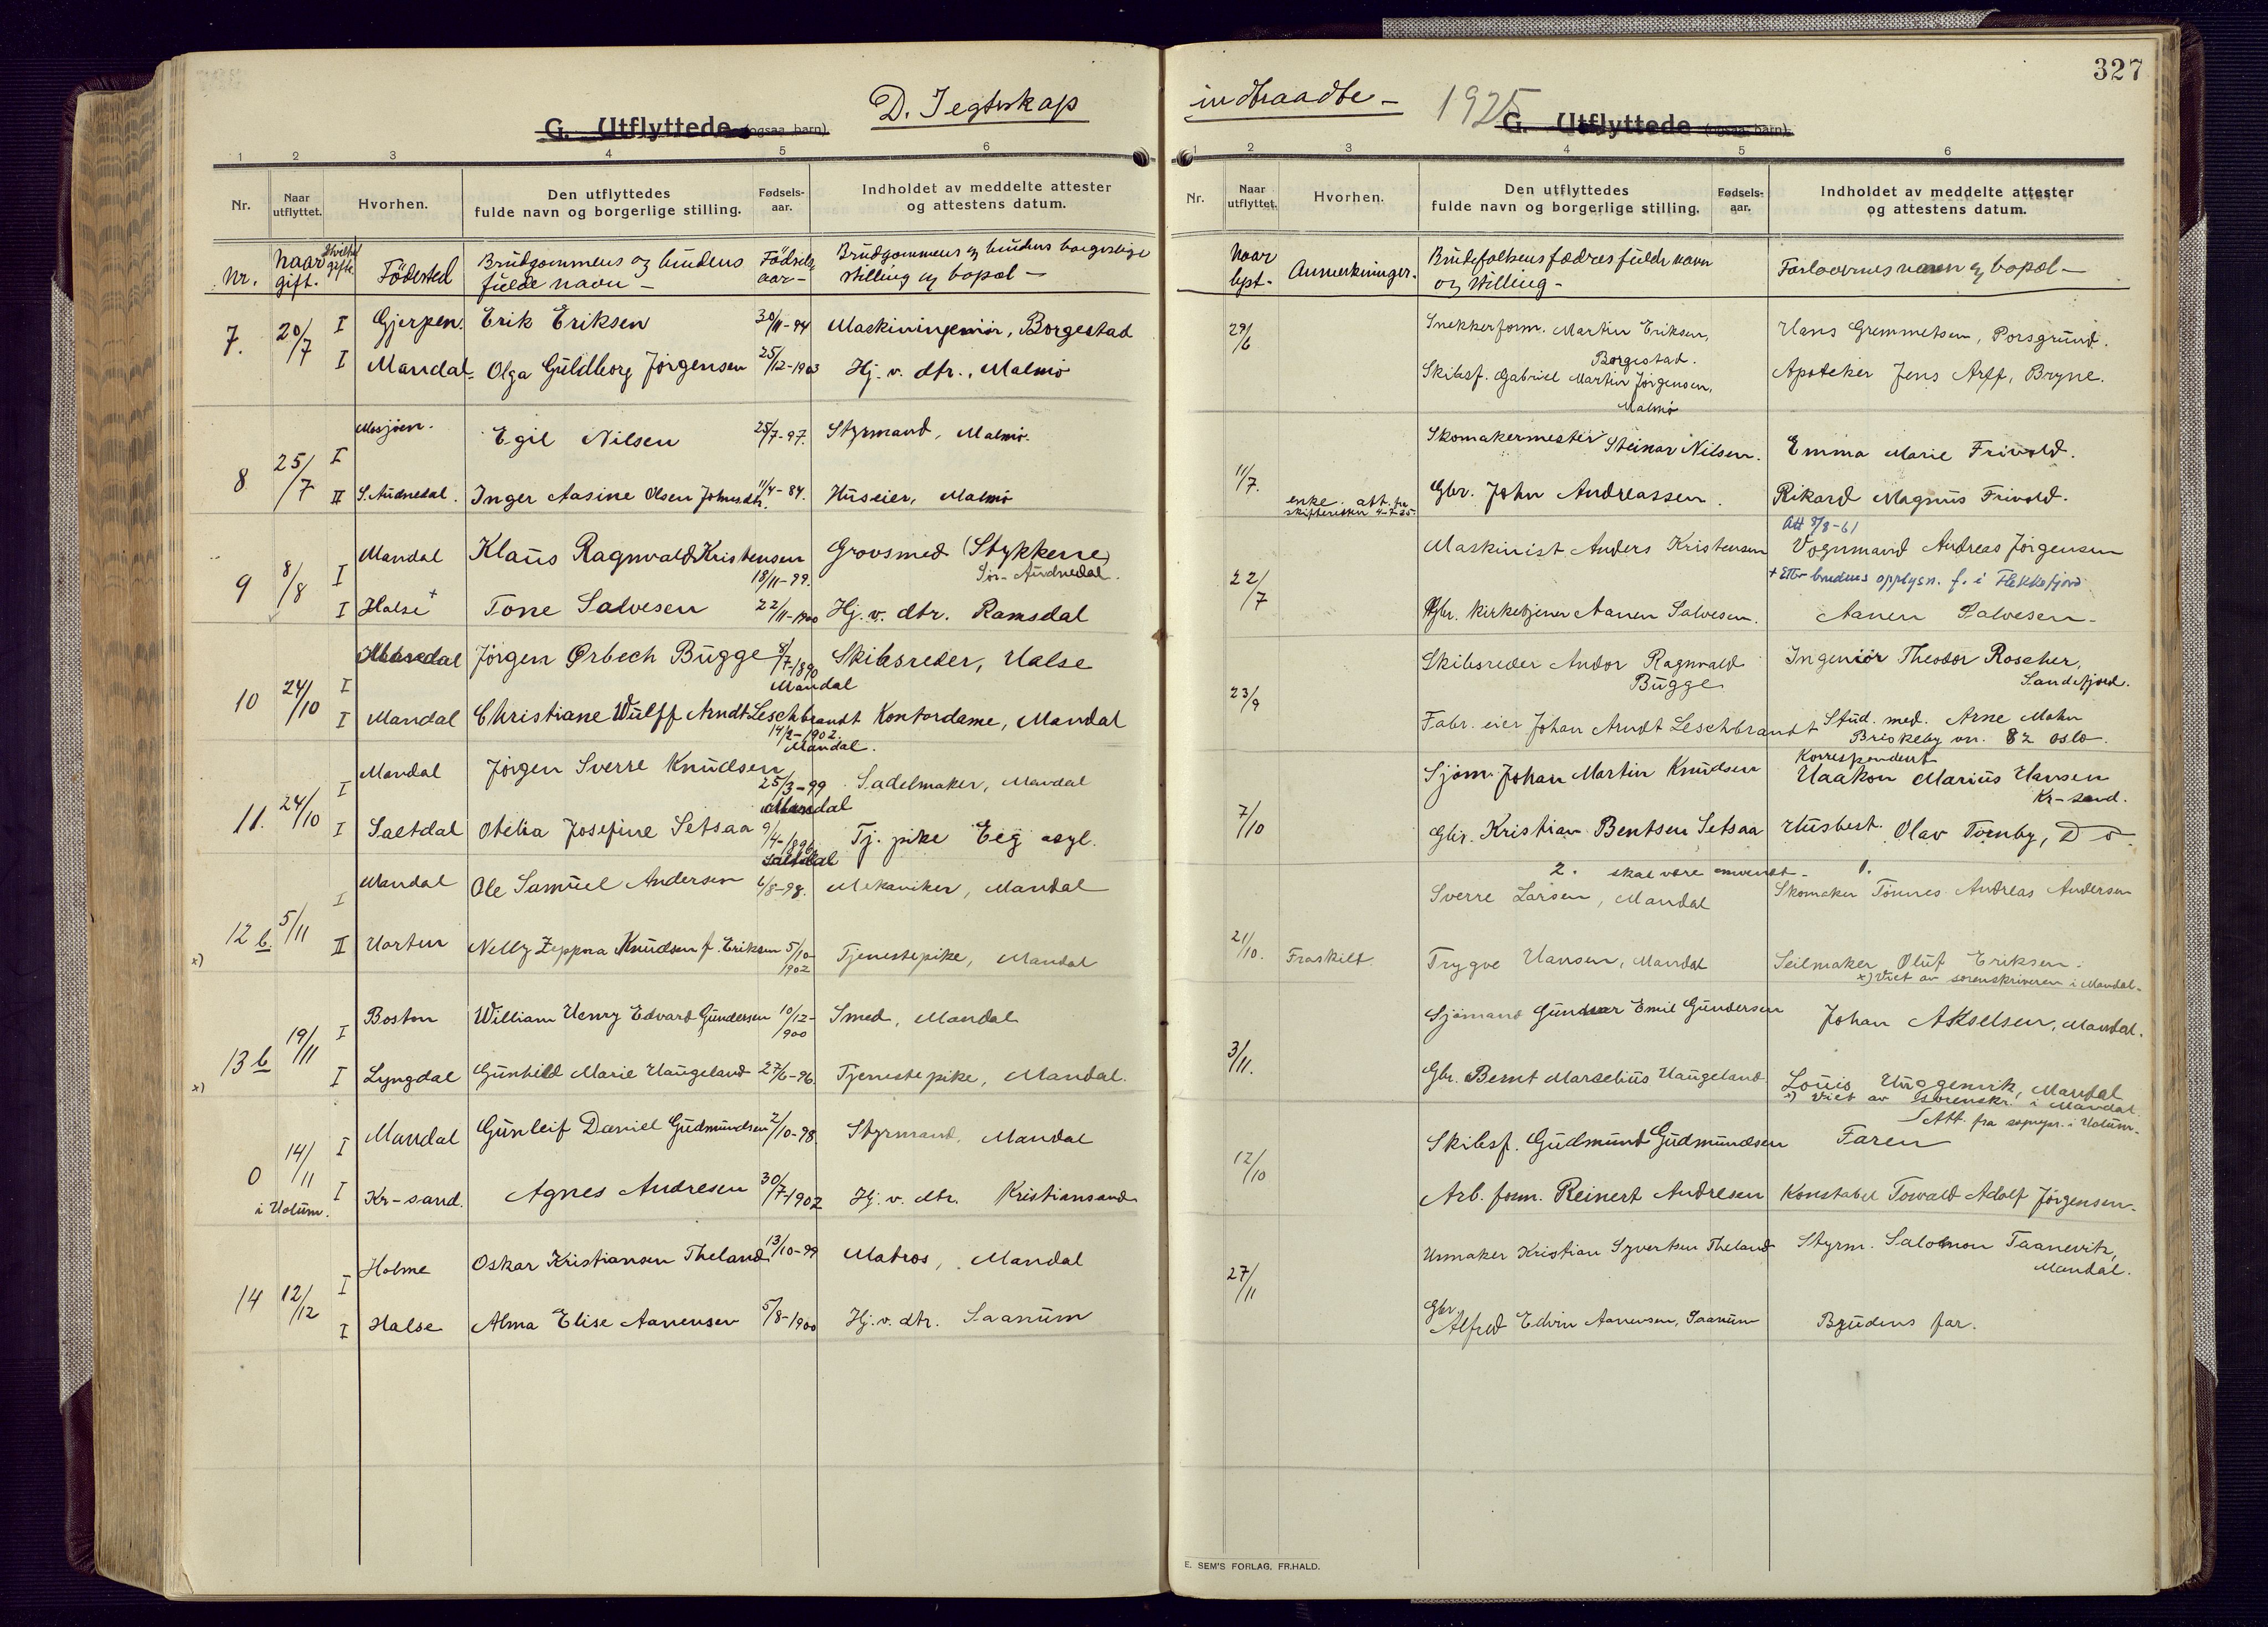 327
D. I egteskap indtraadte - 1925
G. Utflyttede (ogsaa barn)
G. Utflyttede (ogsaa barn)
1 2 3 4 5 6
1 2 3 4 5 6
Nr. Naar utflyttet. Hvorhen. Den utflyttedes fulde navn og borgerlige stilling. Fødsels-aar. Indholdet av meddelte attester og attestens datum.
Nr. Naar utflyttet. Hvorhen. Den utflyttedes fulde navn og borgerlige stilling. Fødsels-aar. Indholdet av meddelte attester og attestens datum.
Nr. Naar gift. Hvilket gifte. Födested Brudgommens og brudens fulde navn - Födsels aar - Brudgommens og brudens borgerlige stilling og bopæl -
Naar lyst - Anmerkninger. Brudefolkenes fædres fulde navn og stilling - Forlovernes navn og bopæl -
7. 20/7 I Gjerpen. Erik Eriksen 30/11-94 Maskiningeniör, Borgestad
29/6 Snekkerform. Martin Eriksen, Borgestad. Hans Gremmetsen, Porsgrund.
I Mandal. Olga Guldborg Jörgensen 25/12-1903 Hj. v. dtr., Malmö
Skibsf. Gabriel Martin Jörgensen, Malmö Apoteker Jens Arff, Bryne.
8 25/7 I Mosjöen. Egil Nilsen 25/7-97. Styrmand, Malmö.
11/7. Skomakermester Steinar Nilsen. Emma Marie Frivold.
II S. Audnedal. Inger Aasine Olsen Johnsdtr. 11/4-84. Huseier, Malmö
enke. att. fra skifteretten 4-7-25. Gbr. John Andreassen. Rikard Magnus Frivold.
Att 8/8-61
9 8/8 I Mandal Klaus Ragnvald Kristensen 18/11-99. Grovsmed (Stykkene) Sör-Audnedal.
22/7 Maskinist Anders Kristensen Vognmand Andreas Jörgensen
+ Efter brudens opplysn. f. i Flekkefjord
I Halse + Tone Salvesen 22/11-1900 Hj. v. dtr. Ramsdal
Gbr. Kirketjener Aanen Salvesen. Aanen Salvesen -
10 24/10 I Mandal Jörgen Ørbech Bugge 8/7-1890 Mandal Skibsreder, Halse
23/9 Skibsreder Andor Ragnvald Bugge Ingeniör Theodor Roscher, Sandefjord.
I Mandal Christiane Wulff Arndt Leschbrandt 14/2-1902. Mandal. Kontordame, Mandal
Fabr. eier Johan Arndt Leschbrandt Stud. med. Arne Mohn Briskeby vn. 82 Oslo.
11. 24/10 I Mandal Jörgen Sverre Knudsen 25/3-99 Mandal Sadelmaker, Mandal
7/10 Sjöm. Johan Martin Knudsen Korrespondent Haakon Marius Hansen Kr-sand.
I Saltdal Otelia Josefine Setsaa 9/4-1896 Saltdal Tj. pike Eeg asyl.
Gbr. Kristian Bentsen Setsaa Husbest. Olav Tornby, Do.
2. skal være omvendt - 1.
12 b. 5/11 I Mandal Ole Samuel Andersen 6/8-98. Mekaniker, Mandal
21/10. Sverre Larsen, Mandal Skomaker Tönnes Andreas Andersen
x) II Horten Nelly Zeppora Knudsen f. Eriksen 5/10-1902 Tjenestepike, Mandal
Fraskilt Trygve Hansen, Mandal Seilmaker Oluf Eriksen.
x) Viet av sorenskriveren i Mandal -
13 b 19/11 I Boston William Henry Edvard Gundersen 10/12-900 Smed, Mandal
3/11. Sjömand Gunvar Emil Gundersen Johan Akselsen, Mandal.
x) I Lyngdal Gunhild Marie Haugeland 27/6-96. Tjenestepike, Mandal.
Gbr. Bernt Marselius Haugeland. Louis Uggenvik, Mandal
x) viet av sorenskr. i Mandal.
Att. fra sognepr. i Holum -
0 i Holum. 14/11 I Mandal Gunleif Daniel Gudmundsen 2/10-98. Styrmand, Mandal
12/10 Skibsf. Gudmund Gudmundsen Faren
I Kr-sand. Agnes Andresen 30/7-1902 Hj. v. dtr. Kristiansand
Arb. form. Reinert Andresen Konstabel Torvald Adolf Jörgensen -
14 12/12 I Holme Oskar Kristiansen Theland 13/10-99 Matros, Mandal
27/11 Urmaker Kristian Syvertsen Theland Styrm. Salomon Taanevik, Mandal.
I Halse Alma Elise Aanensen 5/8-1900 Hj. v. dtr. Saanum
Gbr. Alfred Edvin Aanensen, Saanum Brudens far.
E. SEM'S FORLAG, FR.HALD.